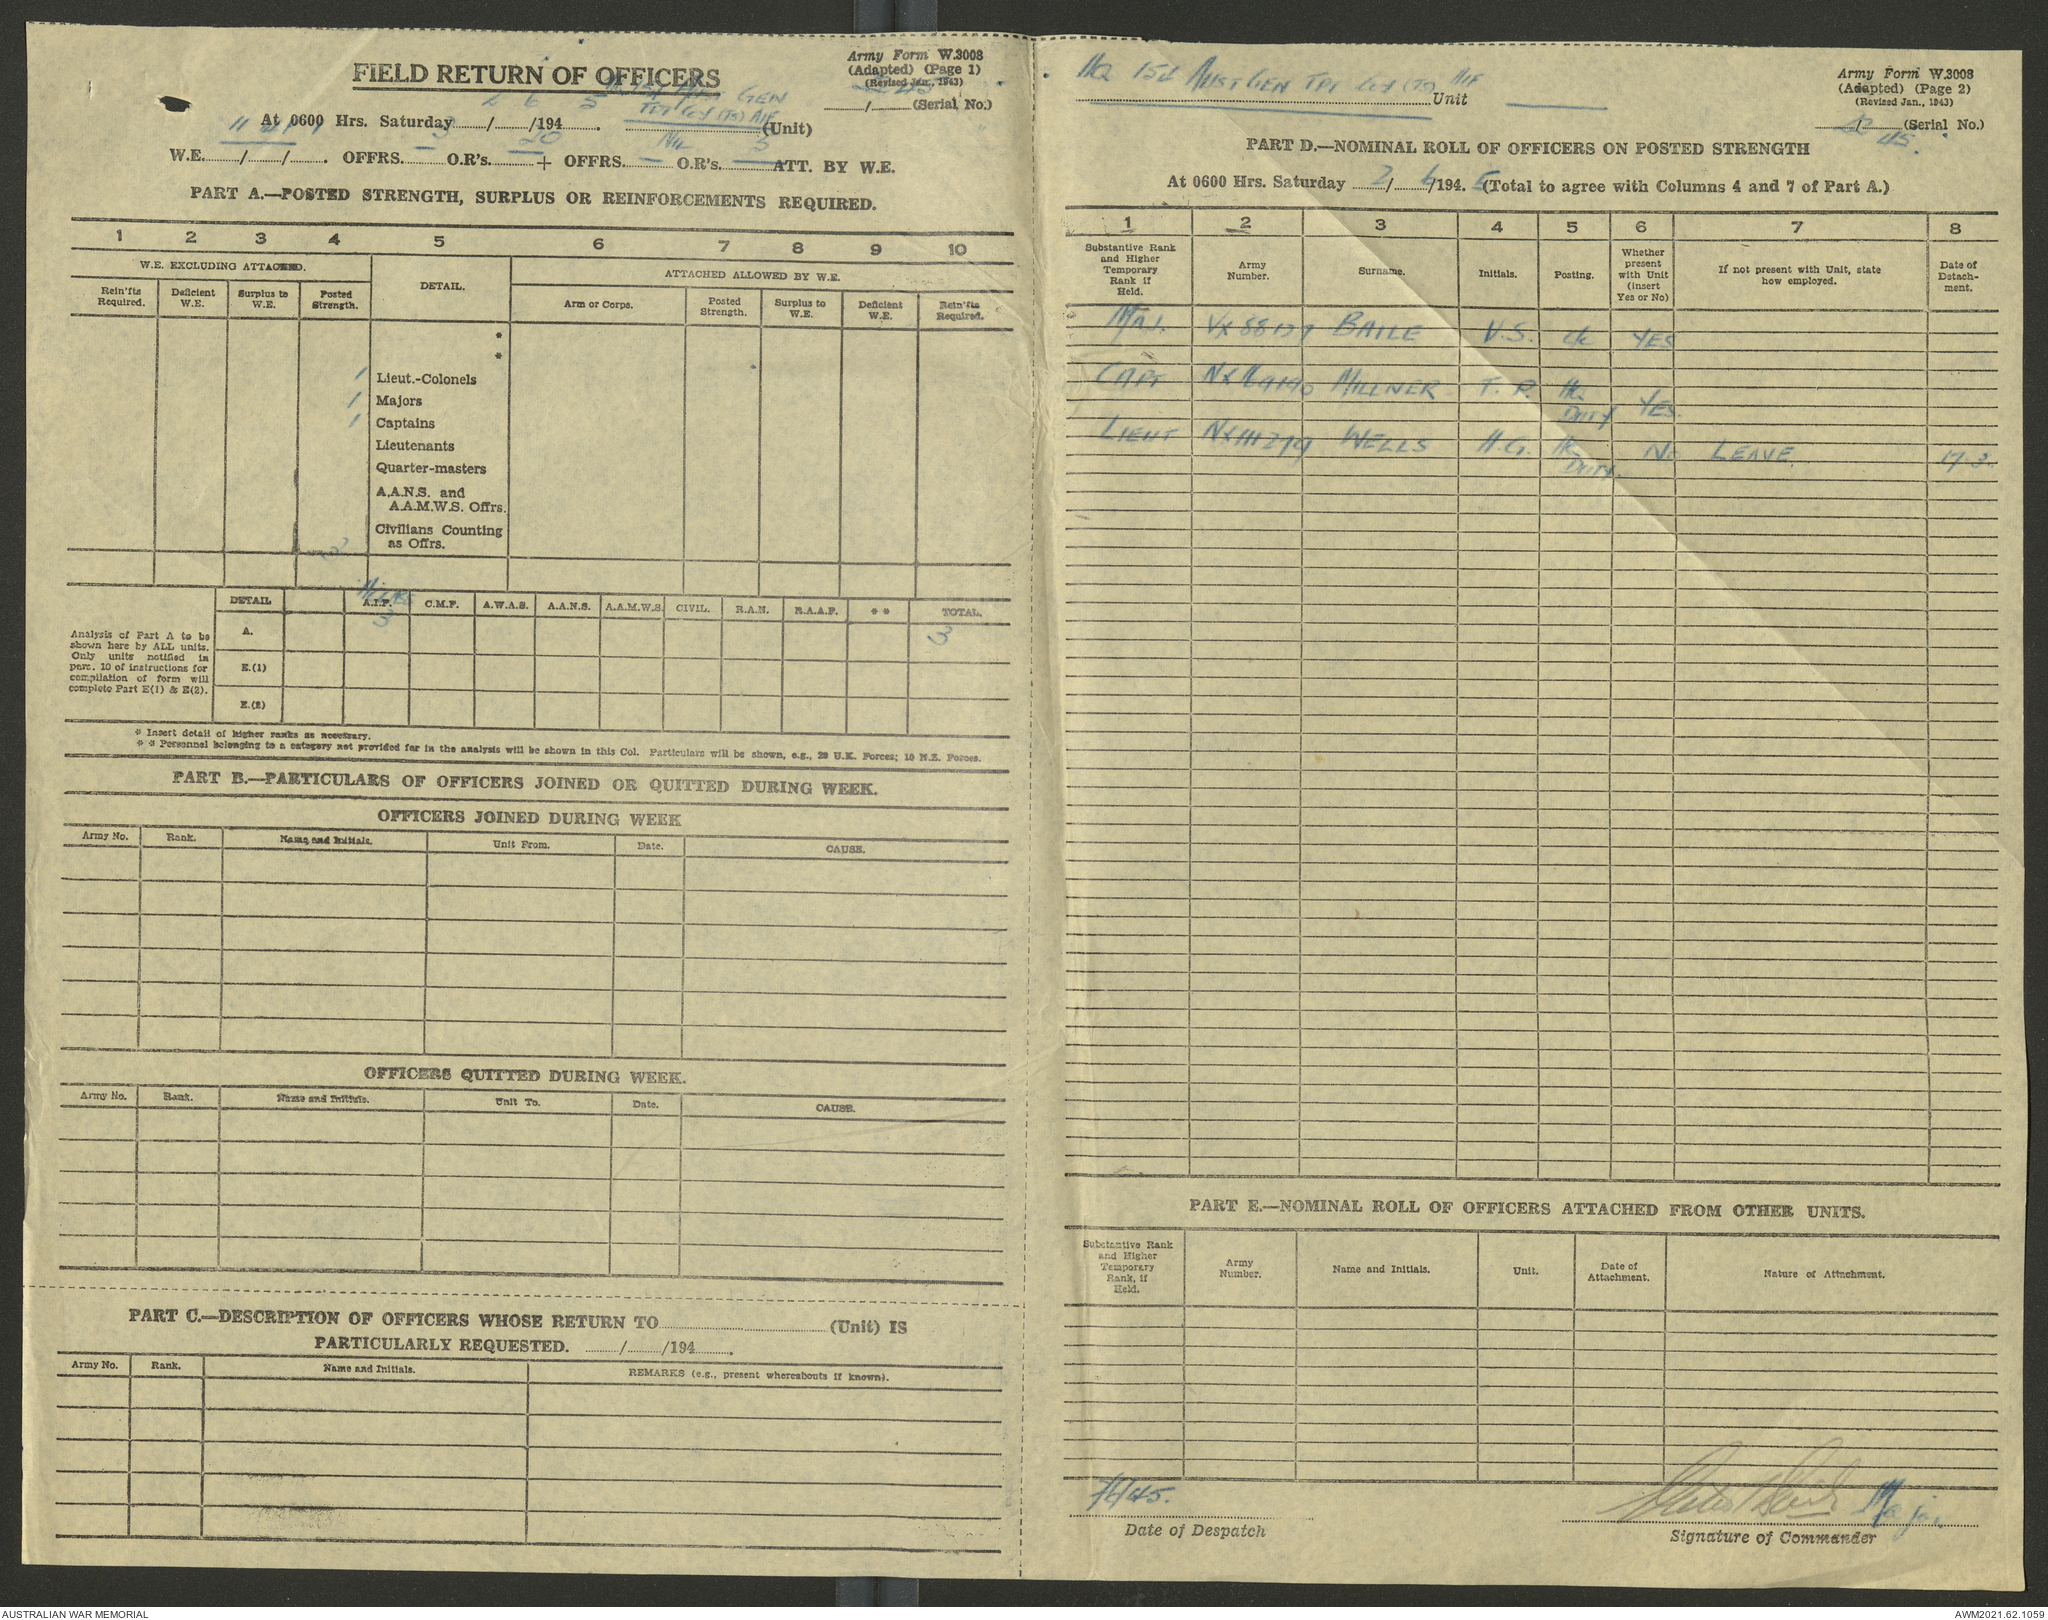 FIELD RETURN OF OFFICERS
Army Form W.3008
(Adapted) (Page 1)
(Revised Jan., 1943)
....../...... (Serial No.)
At 0600 Hrs. Saturday 2/6/1945. Aust Gen
Tpt Coy (TS) AIF (Unit)
W.E. ....../....../...... OFFRS. 3 O.R's. 20 + OFFRS. NIL O.R's. 5 ATT. BY W.E.
PART A.—POSTED STRENGTH, SURPLUS OR REINFORCEMENTS REQUIRED.
1 2 3 4 5 6 7 8 9 10
W.E. EXCLUDING ATTACHED. DETAIL. ATTACHED ALLOWED BY W.E.
Rein'fts Required. Deficient W.E. Surplus to W.E. Posted Strength. Arm or Corps. Posted Strength. Surplus to W.E. Deficient W.E. Rein'fts Required.
*
*
1 Lieut.-Colonels
1 Majors
1 Captains
Lieutenants
Quarter-masters
A.A.N.S. and
A.A.M.W.S. Offrs.
Civilians Counting
as Offrs.
DETAIL A.I.F. C.M.F. A.W.A.S. A.A.N.S. A.A.M.W.S. CIVIL. R.A.N. R.A.A.F. * * TOTAL.
A. 3 3
E.(1)
E.(2)
Analysis of Part A to be
shown here by ALL units.
Only units notified in
para. 10 of instructions for
compilation of form will
complete Part E(1) & E(2).
* Insert detail of higher ranks as necessary.
* * Personnel belonging to a category not provided for in the analysis will be shown in this Col. Particulars will be shown, e.g., 20 U.K. Forces; 10 N.Z. Forces.
PART B.—PARTICULARS OF OFFICERS JOINED OR QUITTED DURING WEEK.
OFFICERS JOINED DURING WEEK
Army No. Rank. Name and Initials. Unit From. Date. CAUSE.
OFFICERS QUITTED DURING WEEK.
Army No. Rank. Name and Initials. Unit To. Date. CAUSE.
PART C.—DESCRIPTION OF OFFICERS WHOSE RETURN TO ...................... (Unit) IS
PARTICULARLY REQUESTED. ....../....../194......
Army No. Rank. Name and Initials. REMARKS (e.g., present whereabouts if known).
HQ 151 AUST GEN TPT COY (TS) AIF Unit
Army Form W.3008
(Adapted) (Page 2)
(Revised Jan., 1943)
(Serial No.)
45.
PART D.—NOMINAL ROLL OF OFFICERS ON POSTED STRENGTH
At 0600 Hrs. Saturday 2/6/1945 (Total to agree with Columns 4 and 7 of Part A.)
1 2 3 4 5 6 7 8
Substantive Rank and Higher Temporary Rank if Held. Army Number. Surname. Initials. Posting. Whether present with Unit (insert Yes or No) If not present with Unit, state how employed. Date of Detach-ment.
MAJ. VX88137 BAILE V.S. YES
CAPT MILLNER T.P. HQ DUTY YES.
LIENT NX111279 WELLS H.G. HQ DUTY. No LEAVE.
PART E.—NOMINAL ROLL OF OFFICERS ATTACHED FROM OTHER UNITS.
Substantive Rank and Higher Temporary Rank, if Held. Army Number. Name and Initials. Unit. Date of Attachment. Nature of Attachment.
Major
Date of Despatch
Signature of Commander
AUSTRALIAN WAR MEMORIAL
AWM2021.62.1059